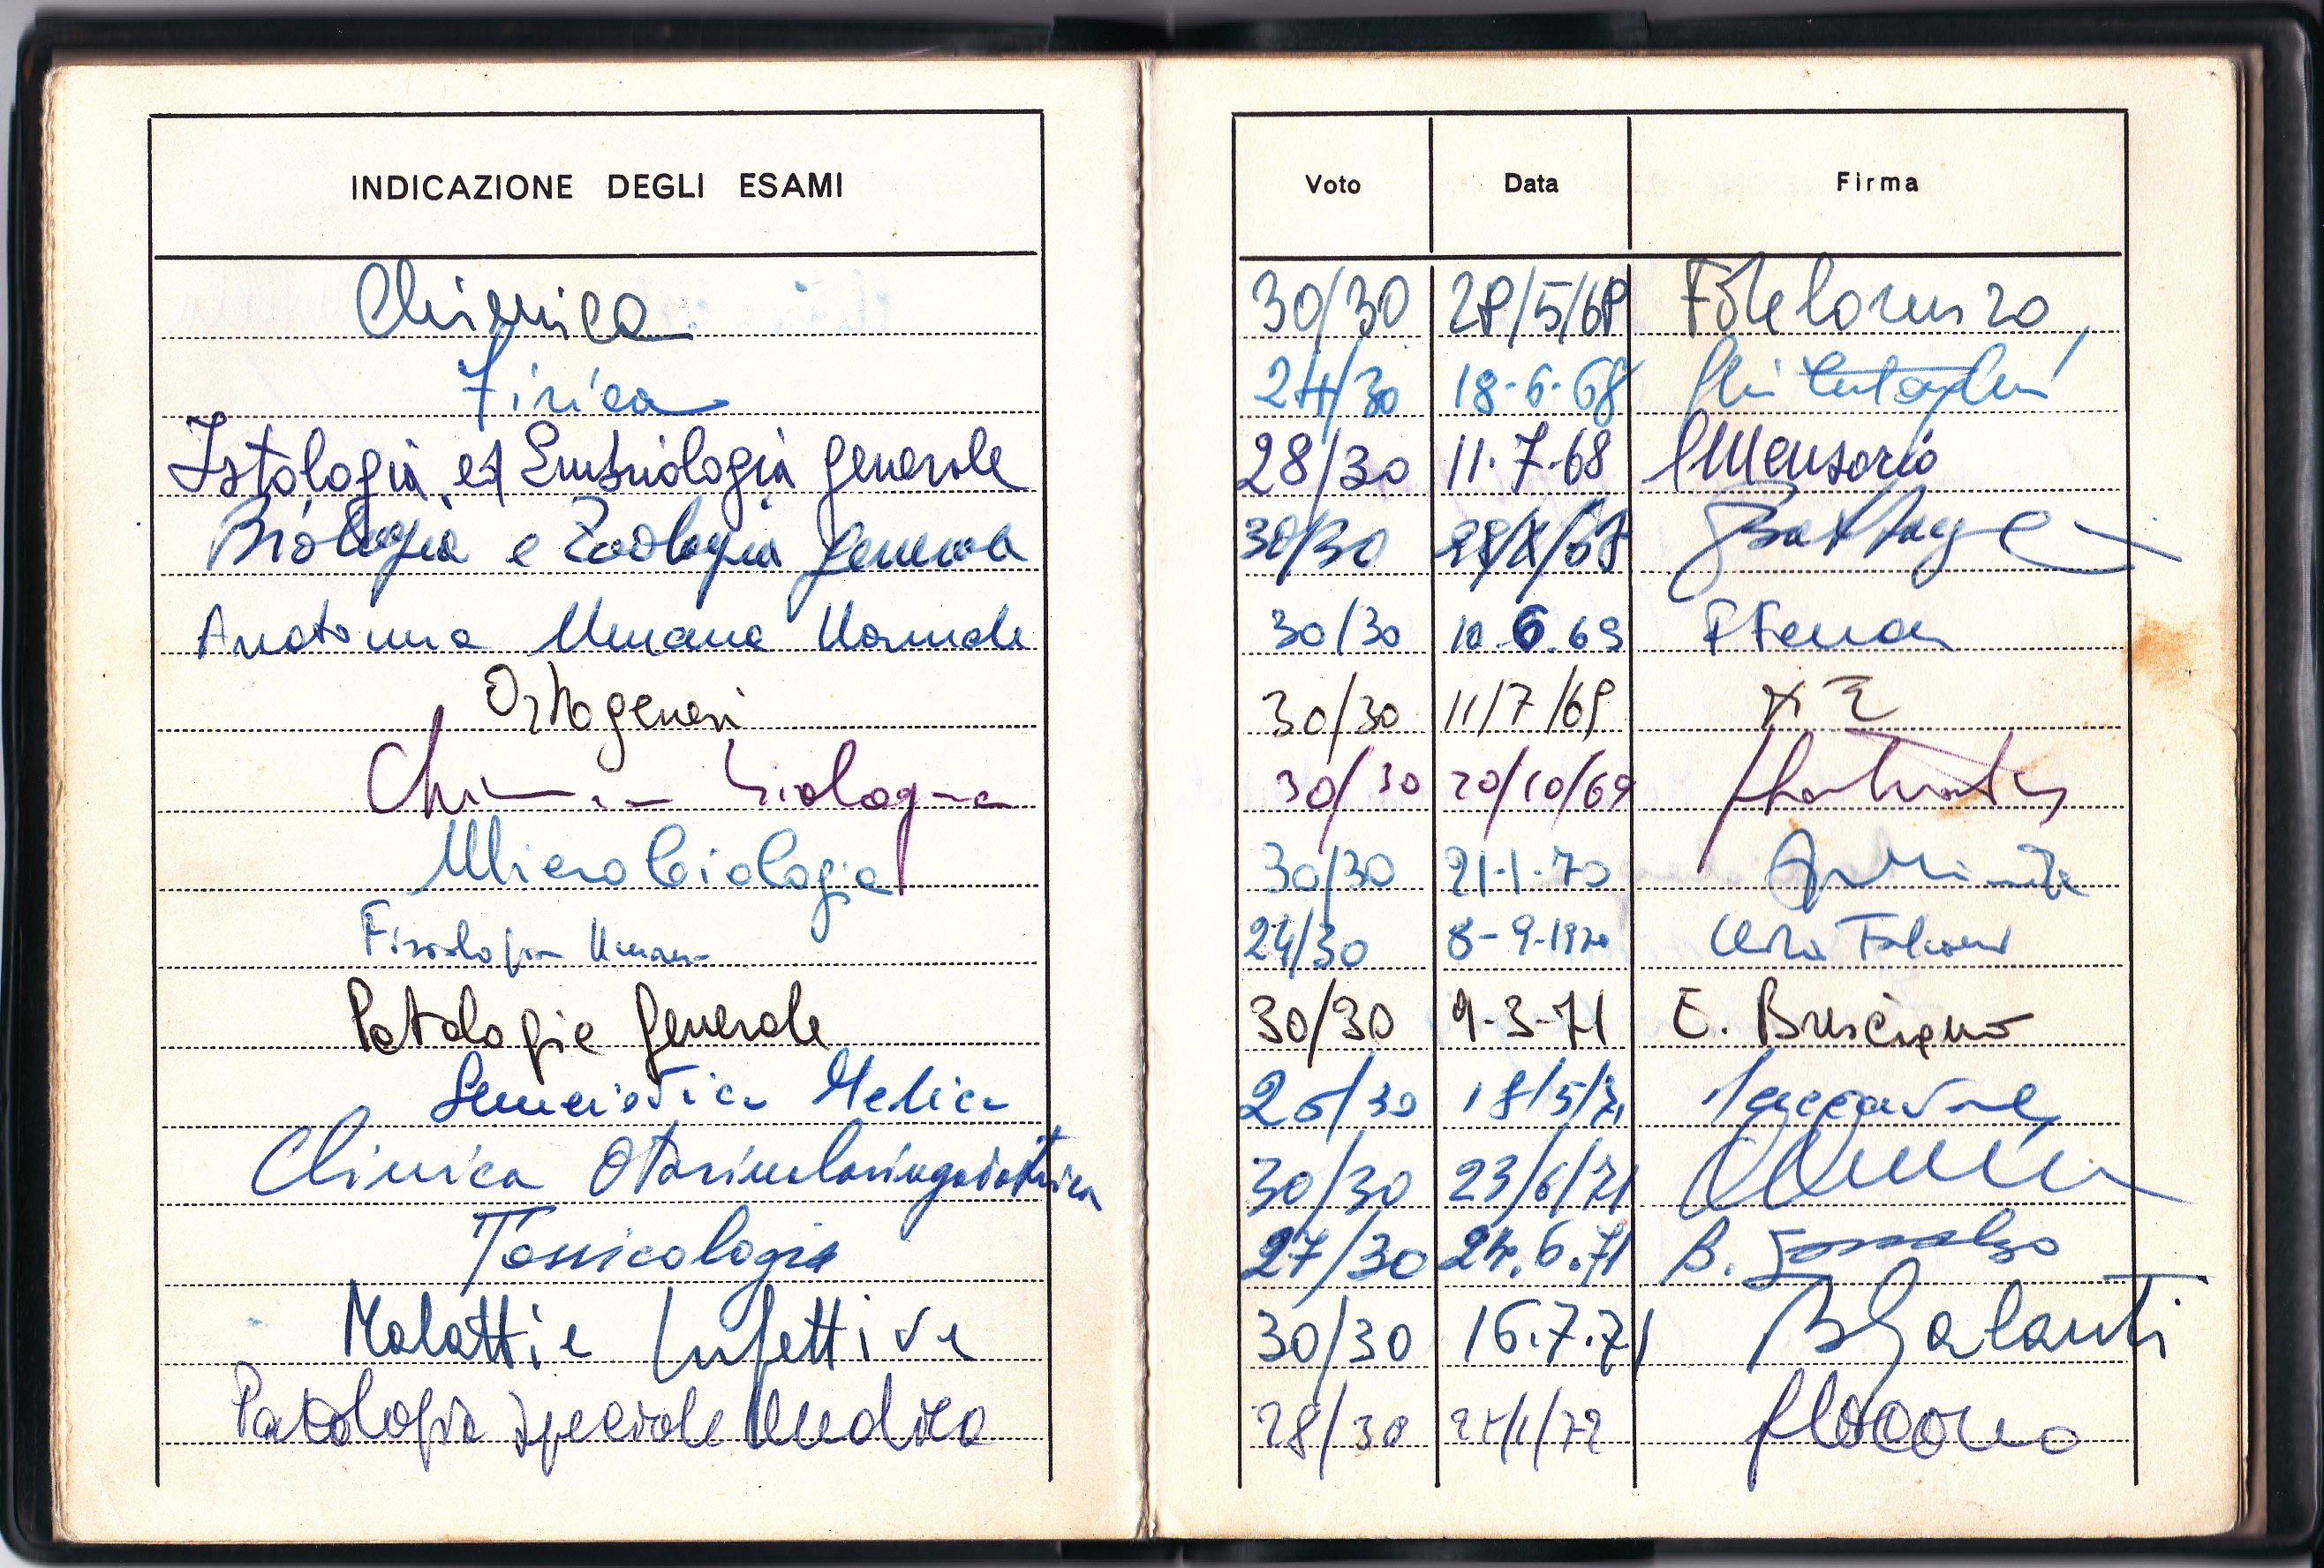 INDICAZIONE DEGLI ESAMI Voto Data Firma
Chimica 30/30 28/5/68 F De Lorenzo
Fisica 24/30 18-6-68
Istologia ed Embriologia generale 28/30 11-7-68 Mensorio
Biologia e Zoologia generale 30/30
Anatomia Umana Normale 30/30 10.6.69
Ortogenesi 30/30 11/7/69
Chimica biologica 30/30 20/10/69
Microbiologia 30/30 21-1-70
Fisiologia Umana 24/30 8-9-1970
Patologia generale 30/30 9-3-71 E. Bresciano
Semeiotica Medica /30 18/5/71
Clinica Otorinolaringoiatrica 30/30 23/6/71
Tossicologia 27/30 24.6.71 B.
Malattie Infettive 30/30 16.7.71 B Galanti
Patologia speciale medica 28/30